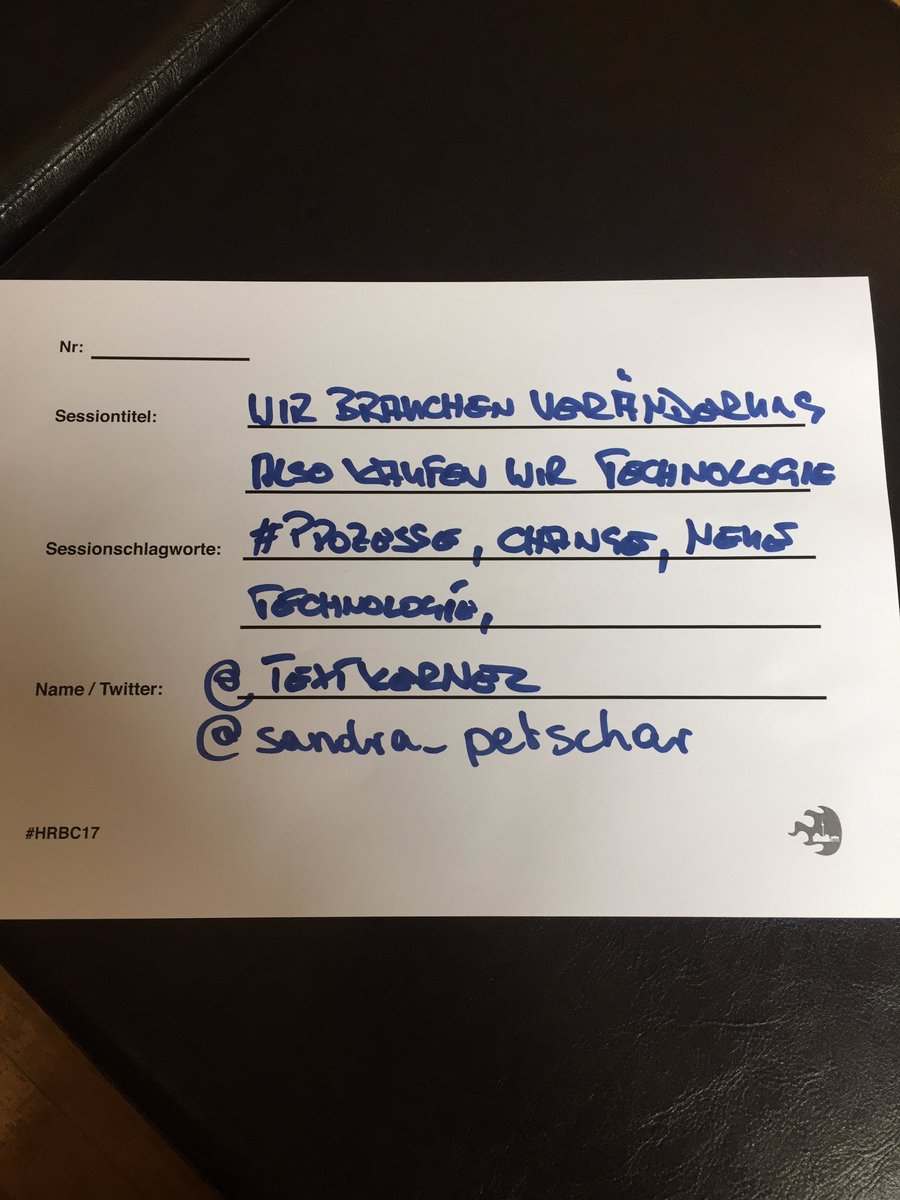 Nr:
Sessiontitel: WIR BRAUCHEN VERÄNDERUNG
ALSO KAUFEN WIR TECHNOLOGIE
Sessionschlagworte: #PROZESSE, CHANGE, NEUE
TECHNOLOGIE,
Name / Twitter: @TEXTKERNEL
@sandra_petschar
#HRBC17